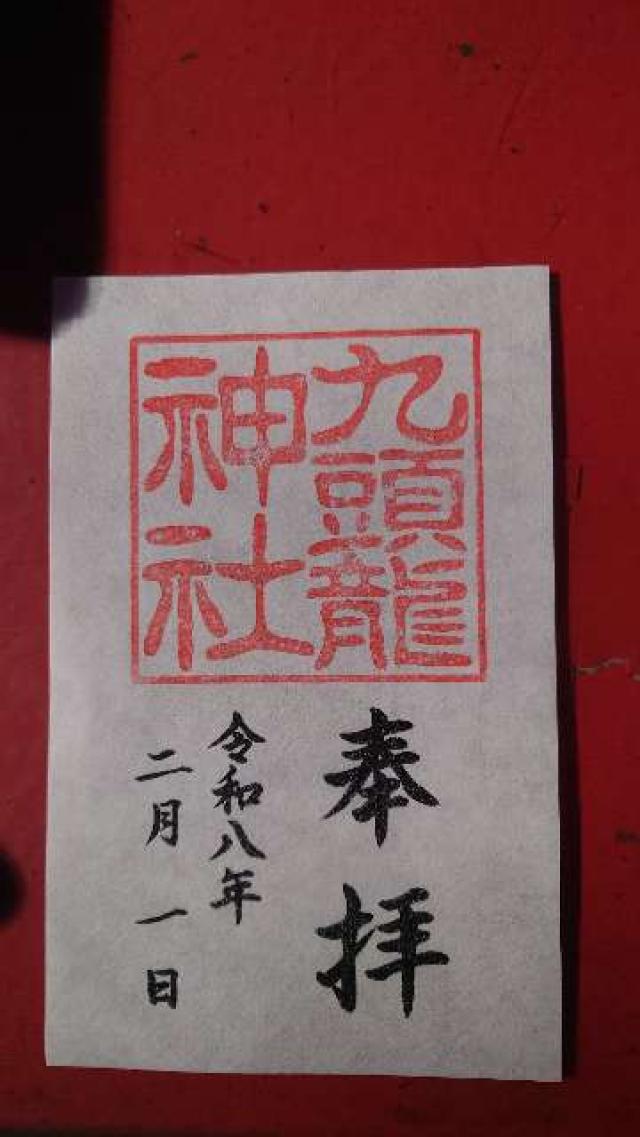 九頭龍
神社
奉拝
令和八年
二月一日